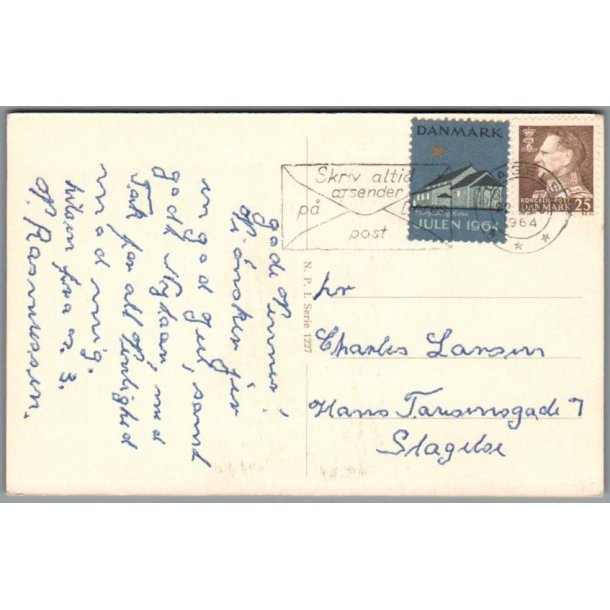 gode Venner!
Vi ønsker jer
en god jul, samt
godt Nytaar, med
Tak for alt Venlighed
mod mig.
hilsen fra os 3.
N. Rasmussen.
N. P. I. Serie 1227
Skriv altid
afsender
på
post
DANMARK
JULEN 1964
KONGELIG POST
DANMARK 25
1964
hr
Charles Larsen
Hans Tausensgade 7
Slagelse